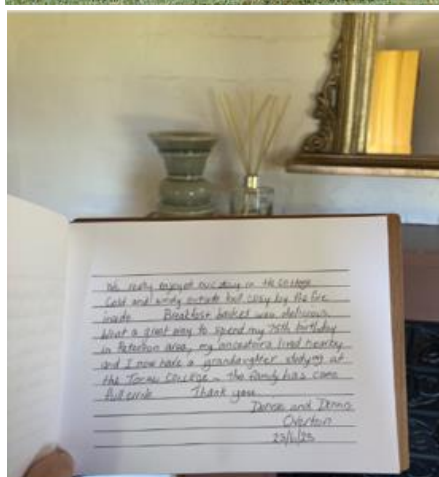 We really enjoyed our day in the Cottage
Cold and windy outside but cosy by the fire
inside Breakfast basket was delicious
What a great way to spend my 75th birthday
in Paterson area, my ancestors lived nearby
and I now have a grandaughter studying at
the Tocal College - the family has come
full circle Thank you
and Dennis
Overton
23/6/23